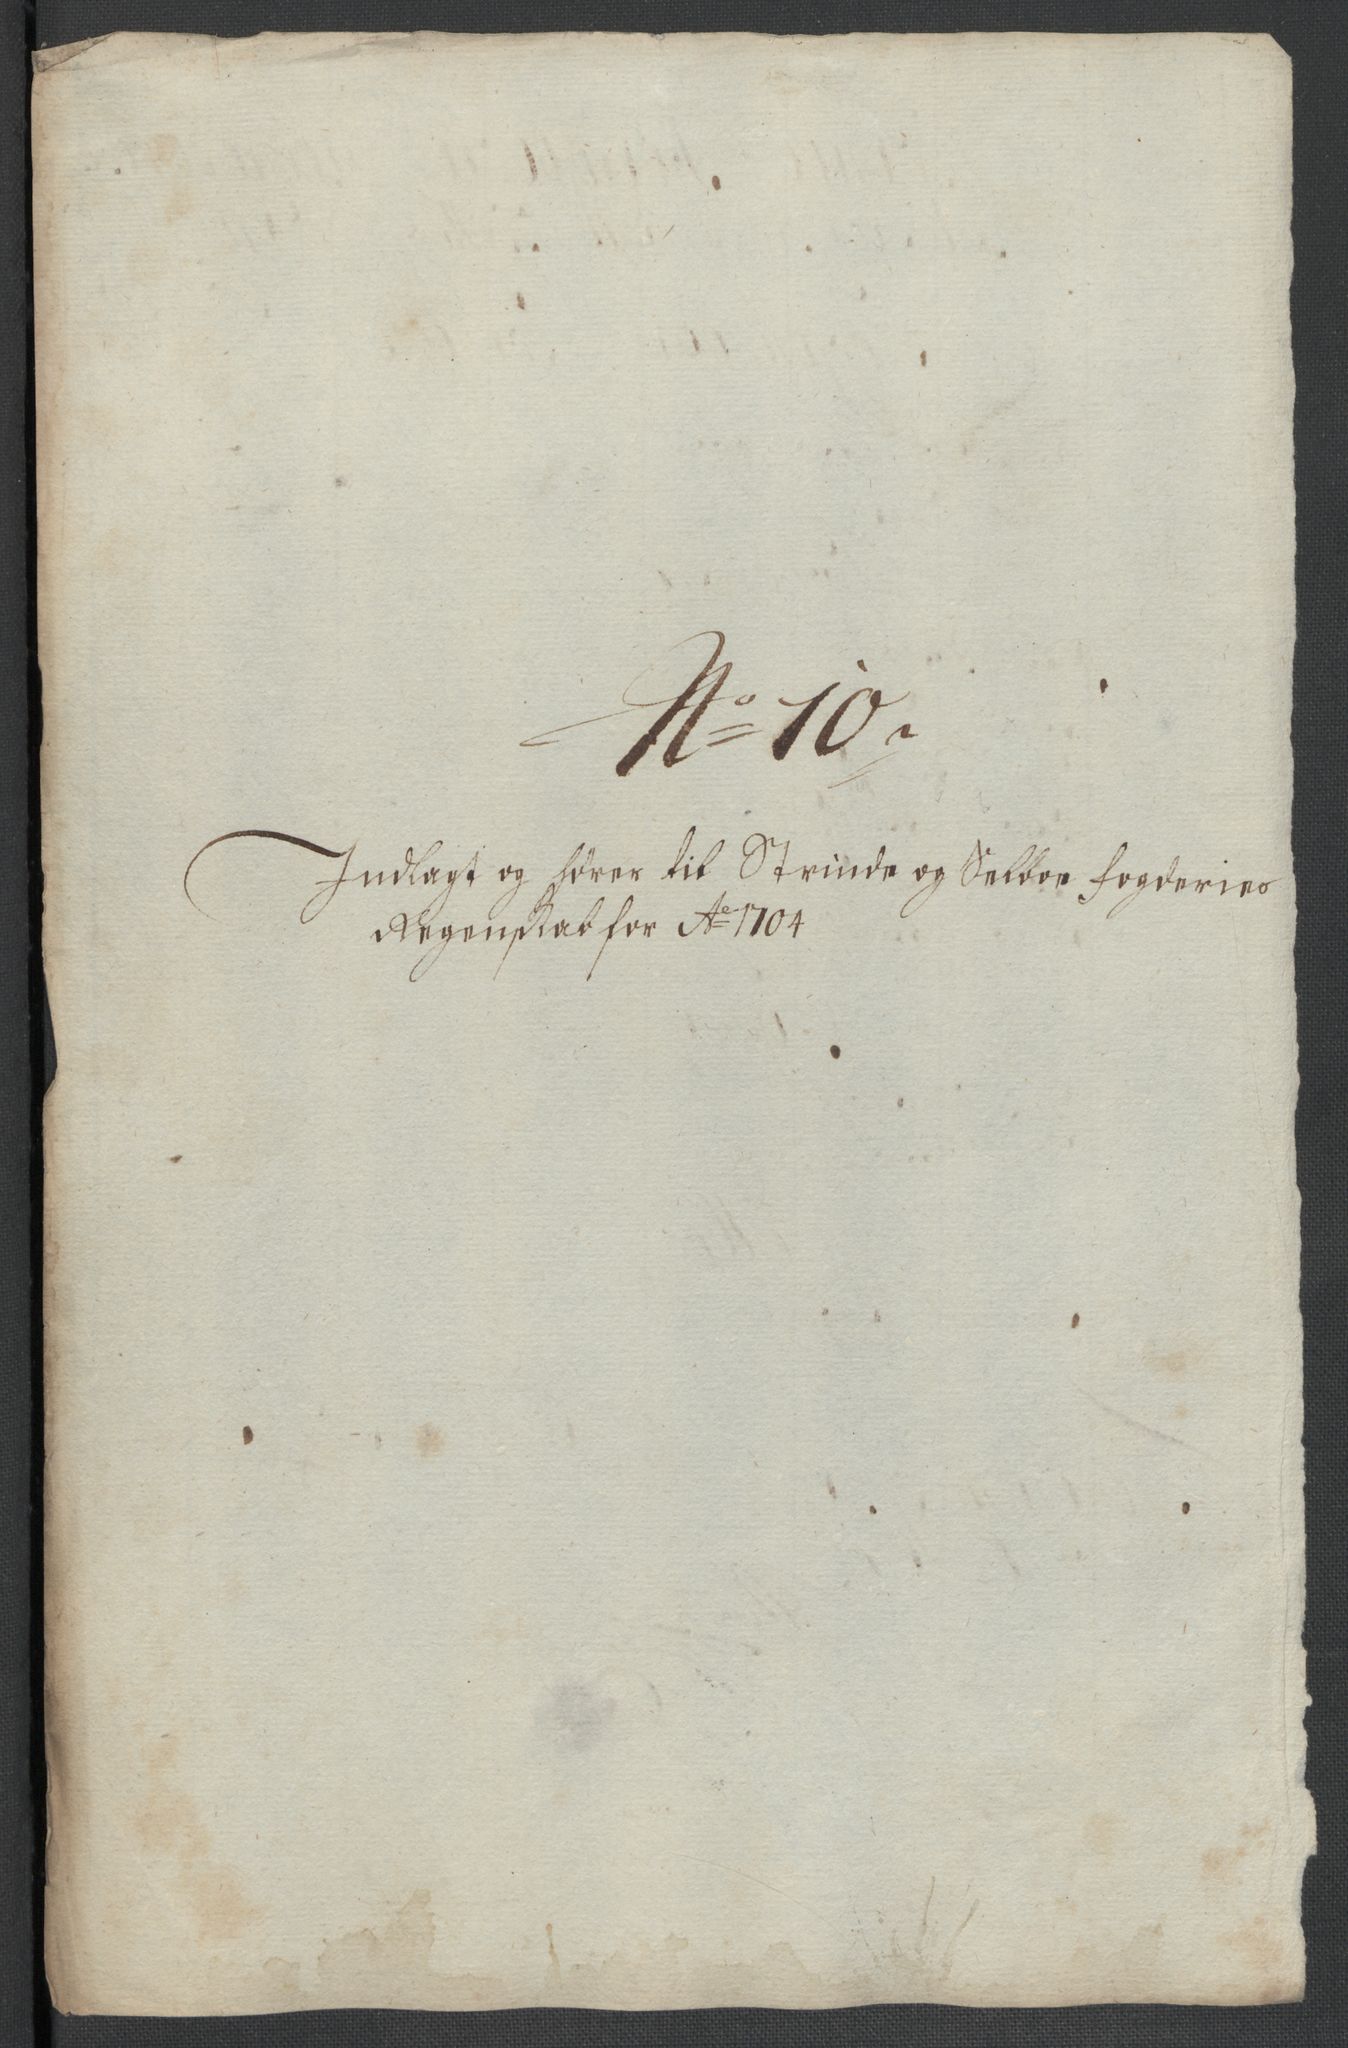 No 10.
Indlagt og hörer til Strinde og Selboe fogderies
Regenskab for Ao 1704